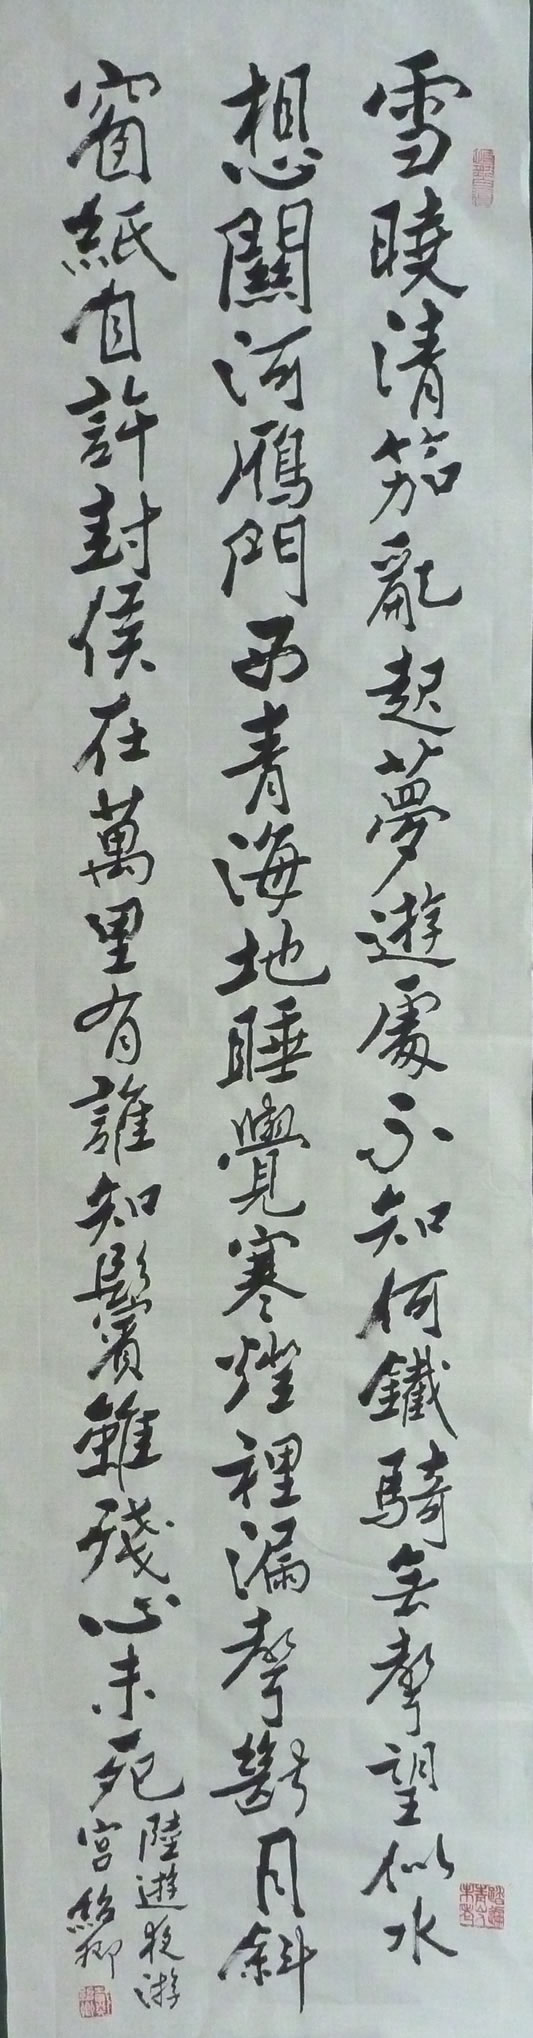 雪曉清笳亂起夢遊處不知何鐵騎無聲望似水
想關河雁門西青海地睡覺寒燈裡漏聲斷月斜
窗紙自許封侯在萬里有誰知鬢雖殘心未死
陸遊夜游
宮